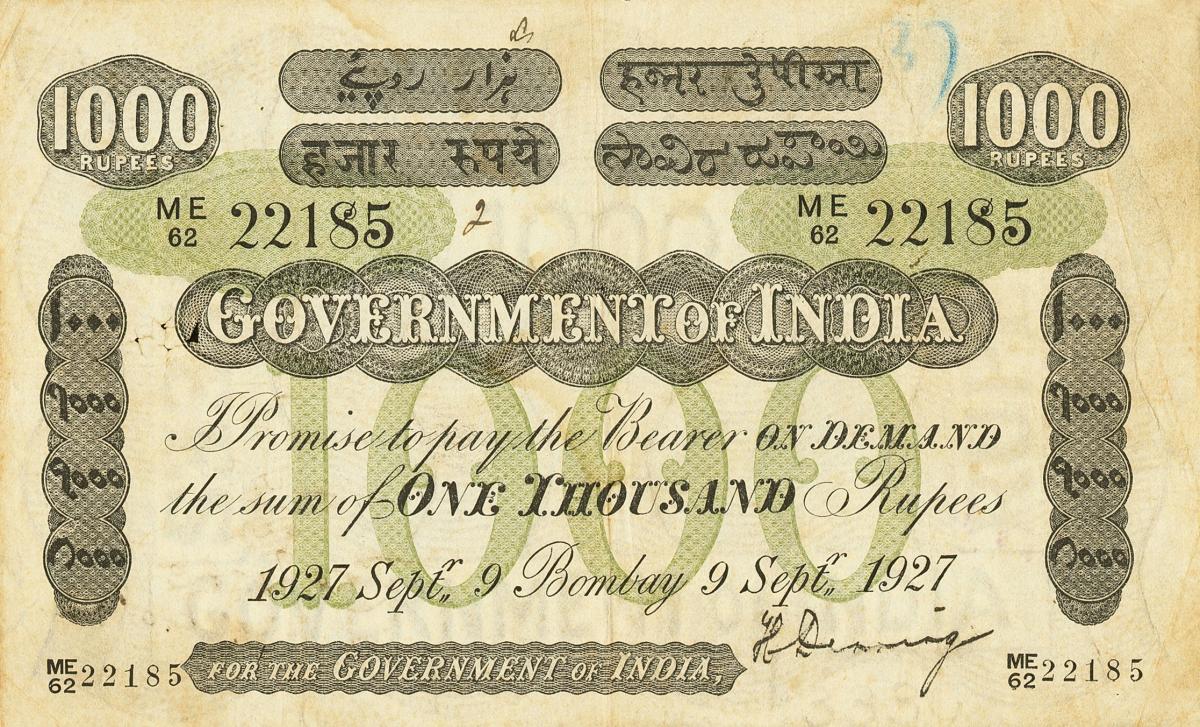 1000 RUPEES
ہزار روپیے
हजार रुपये
ಸಾವಿರ ರೂಪಾಯಿ
1000 RUPEES
ME 62 22185
2
ME 62 22185
GOVERNMENT OF INDIA
۱۰۰۰
१०००
१०००
۱۰۰۰
१०००
१०००
I Promise to pay the Bearer ON DEMAND
the sum of ONE THOUSAND Rupees
1927 Septr. 9 Bombay 9 Septr. 1927
H Denning
ME 62 22185
FOR THE GOVERNMENT OF INDIA,
ME 62 22185